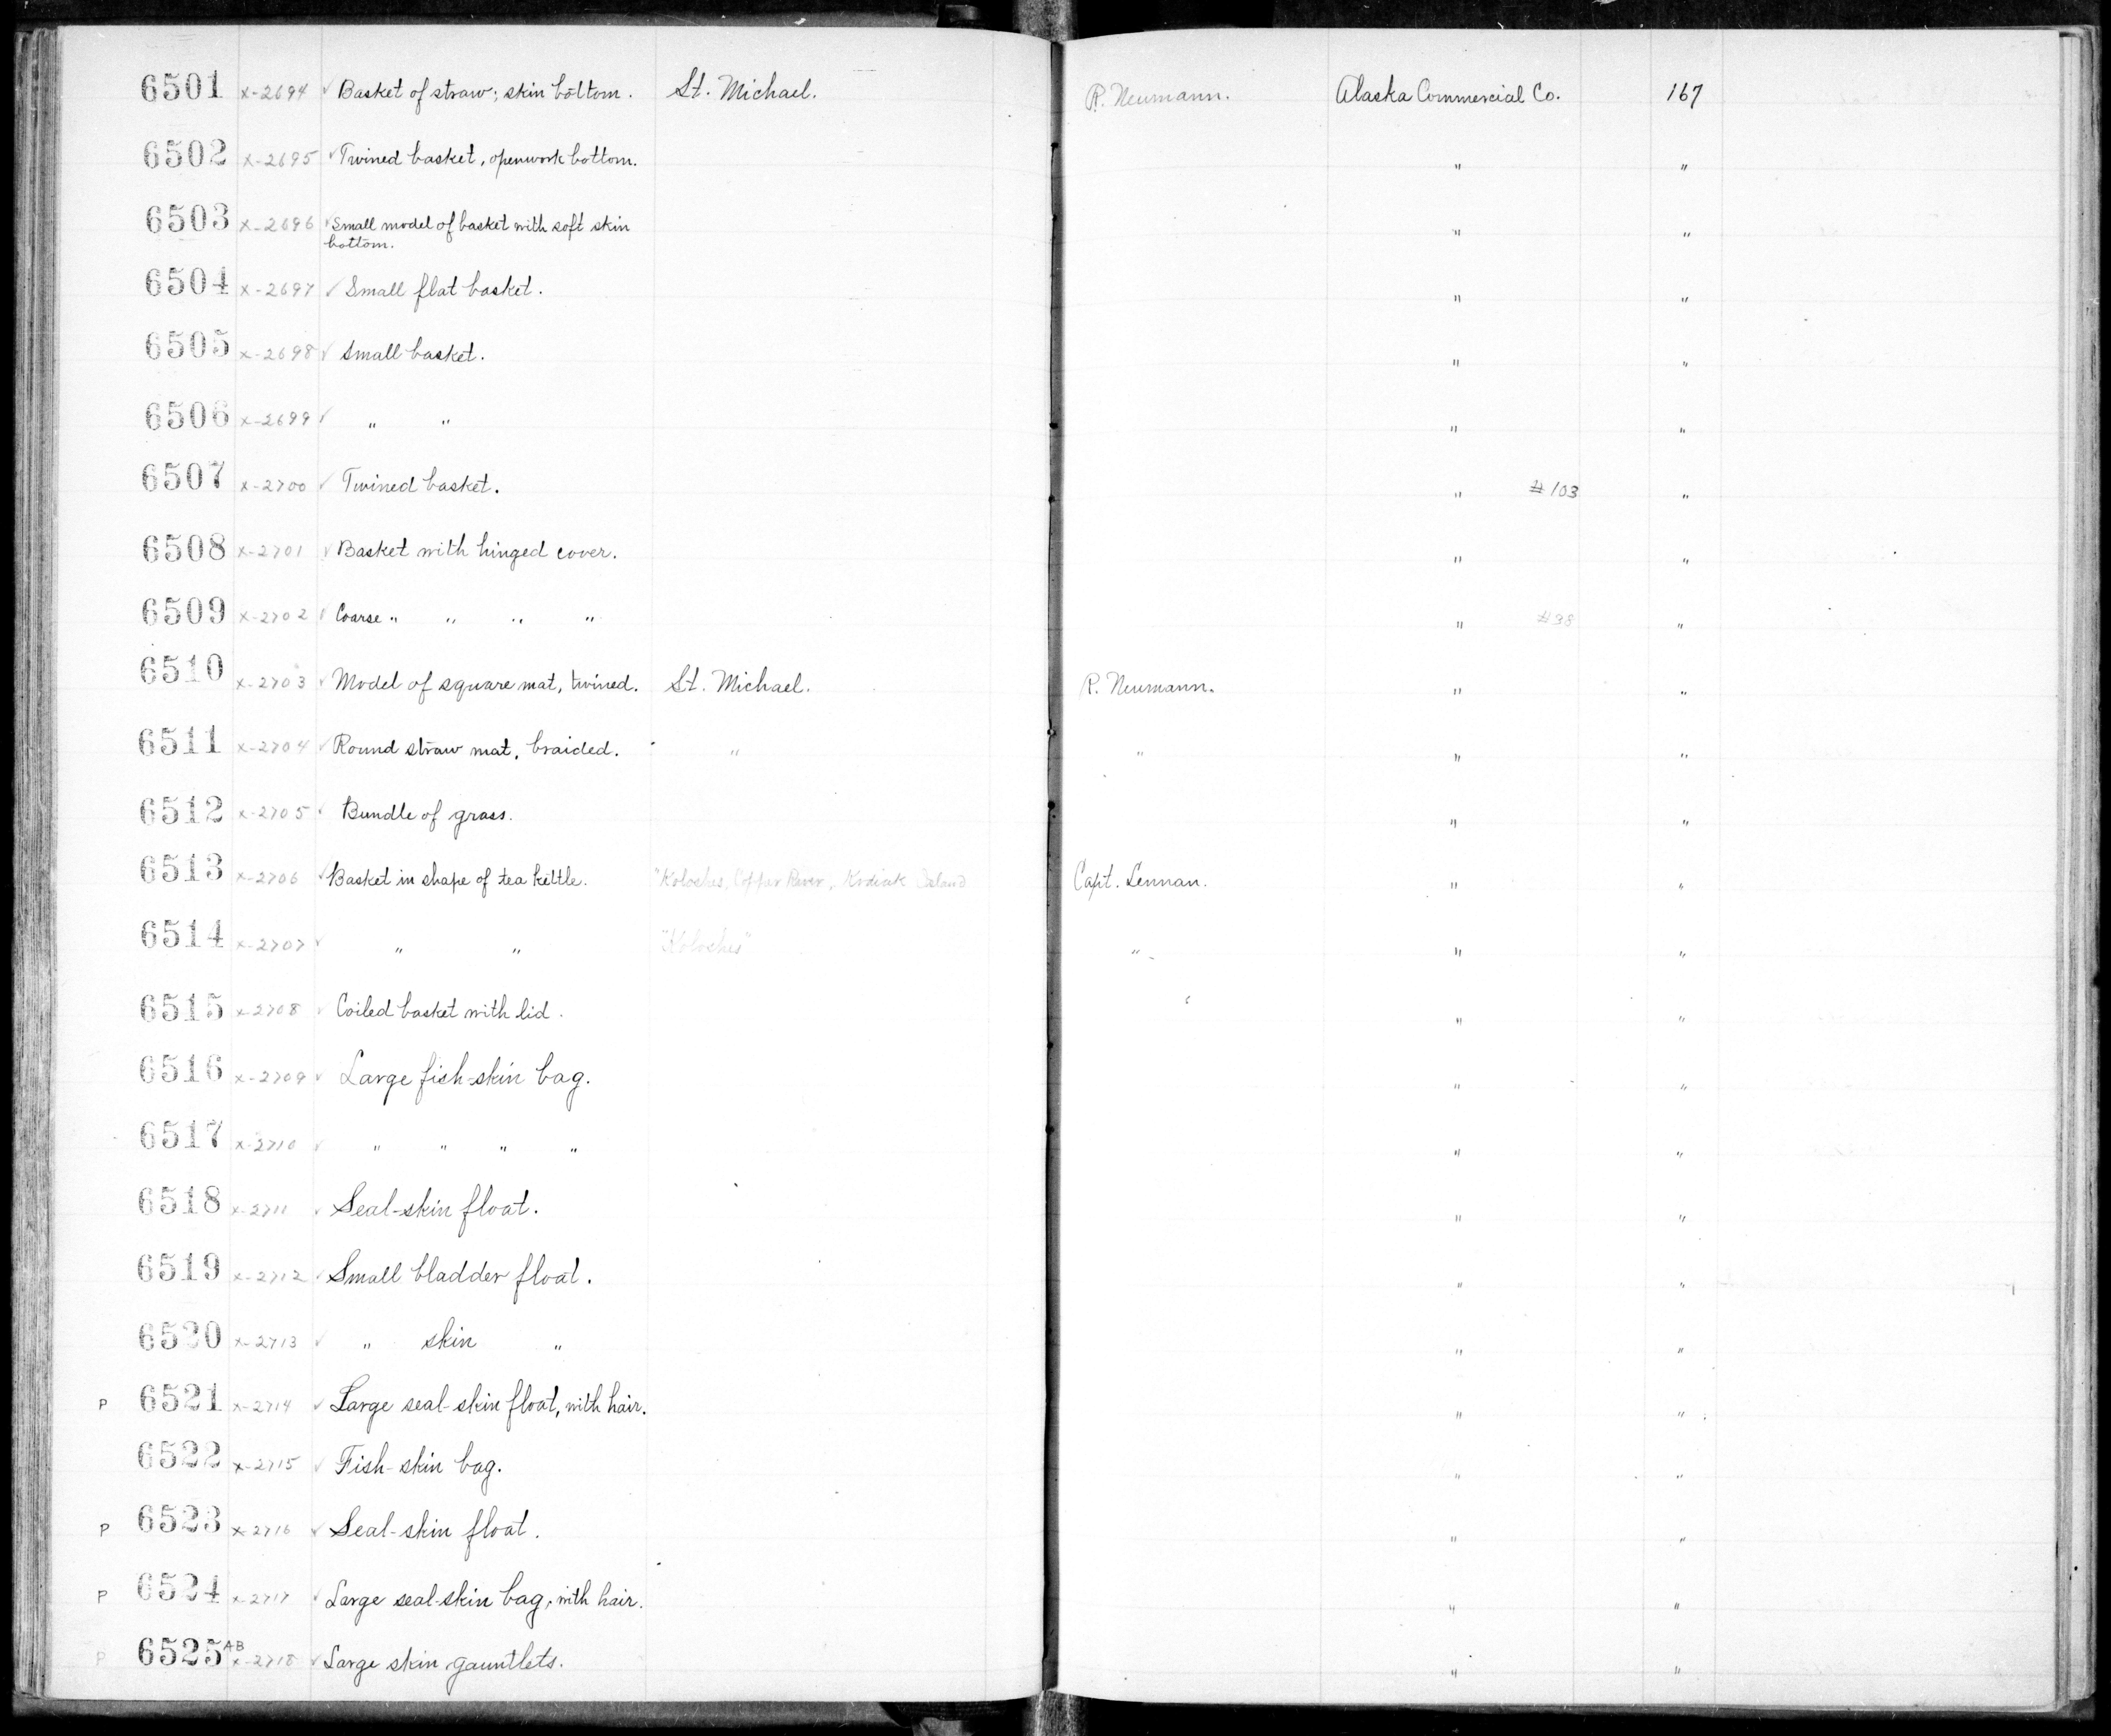 6501 x-2694 ✓ Basket of straw; skin bottom. St. Michael. R. Neumann. Alaska Commercial Co. 167
6502 x-2695 ✓ Twined basket, openwork bottom. " "
6503 x-2696 ✓ Small model of basket with soft skin
bottom. " "
6504 x-2697 ✓ Small flat basket. " "
6505 x-2698 ✓ Small basket. " "
6506 x-2699 ✓ " " " "
6507 x-2700 ✓ Twined basket. " #103 "
6508 x-2701 ✓ Basket with hinged cover. " "
6509 x-2702 ✓ Coarse " " " " " #38 "
6510 x-2703 ✓ Model of square mat, twined. St. Michael. R. Neumann. " "
6511 x-2704 ✓ Round straw mat, braided. " " " "
6512 x-2705 ✓ Bundle of grass. " "
6513 x-2706 ✓ Basket in shape of tea kettle. "Koloshes, Copper River, Kodiak Island Capt. Lennan. " "
6514 x-2707 ✓ " " "Koloshes" " " "
6515 x-2708 ✓ Coiled basket with lid. " "
6516 x-2709 ✓ Large fish-skin bag. " "
6517 x-2710 ✓ " " " " " "
6518 x-2711 ✓ Seal-skin float. " "
6519 x-2712 ✓ Small bladder float. " "
6520 x-2713 ✓ " skin " " "
P 6521 x-2714 ✓ Large seal-skin float, with hair. " "
6522 x-2715 ✓ Fish-skin bag. " "
P 6523 x-2716 ✓ Seal-skin float. " "
P 6524 x-2717 ✓ Large seal-skin bag, with hair. " "
P 6525 AB x-2718 ✓ Large skin gauntlets. " "